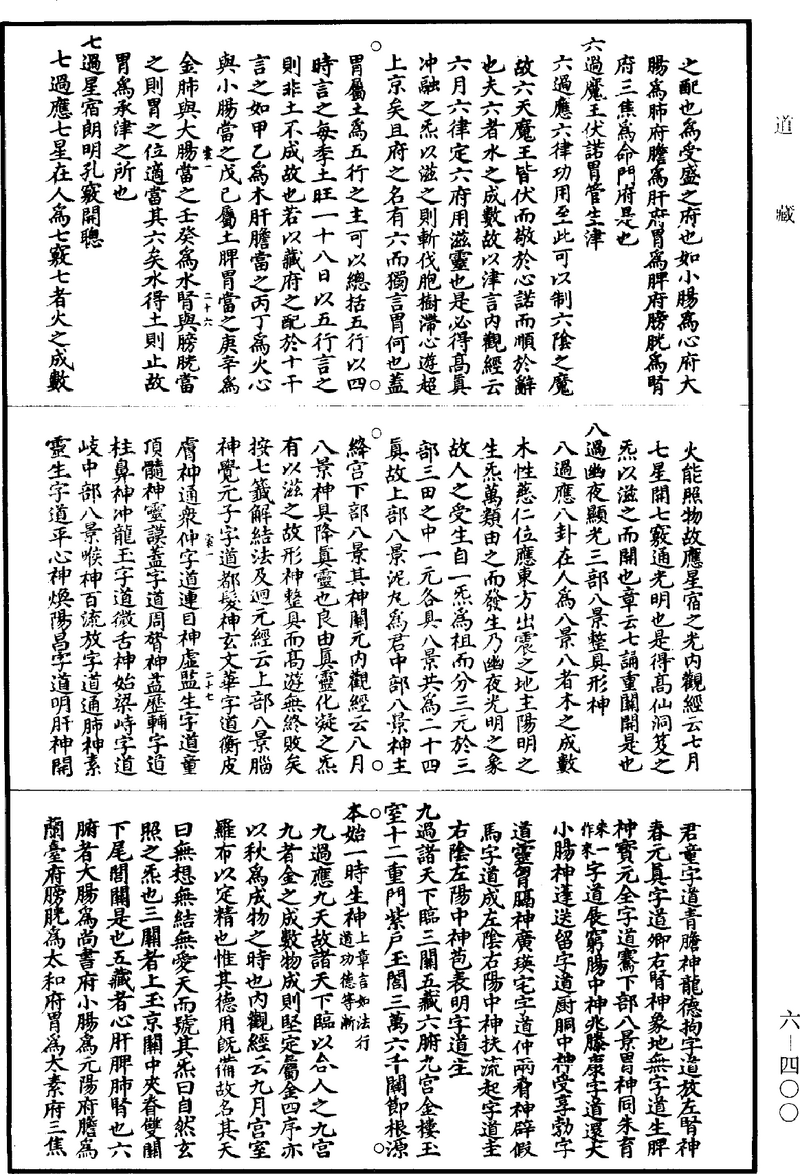 道藏
之配也為受盛之府也如小腸為心府大
腸為肺府膽為肝府胃為脾府膀胱為腎
府三焦為命門府是也
六過魔王伏諾胃管生津
六過應六律功用至此可以制六陰之魔
故六天魔王皆伏而敬於心諾而順於辭
也夫六者水之成數故以津言內觀經云
六月六律定六府用滋靈也是必得高真
冲融之炁以滋之則斬伐胞樹滯心遊超
上京矣且府之名有六而獨言胃何也蓋
胃屬土為五行之主可以總括五行以四
時言之每季土旺一十八日以五行言之
則非土不成故也若以藏府之配於十干
言之如甲乙為木肝膽當之丙丁為火心
與小腸當之戊己屬土脾胃當之庚辛為
金肺與大腸當之壬癸為水腎與膀胱當
二十六
之則胃之位適當其六矣水得土則止故
胃為承津之所也
七過星宿朗明孔竅開聰
七過應七星在人為七竅七者火之成數
火能照物故應星宿之光內觀經云七月
七星開七竅通光明也是得高仙洞笈之
炁以滋之而關也章云七誦重關開是也
八過幽夜顯光三部八景整具形神
八過應八卦在人為八景八者木之成數
木性慈仁位應東方出震之地主陽明之
生炁萬類由之而發生乃幽夜光明之象
故人之受生自一炁為祖而分三元於三
部三田之中一元各具八景共為二十四
真故上部八景泥丸為君中部八景神主
絳宮下部八景其神關元內觀經云八月
八景神具降真靈也良由真靈化凝之炁
有以滋之故形神整具而高遊無終敗矣
按七籤解結法及迴元經云上部八景腦
神覺元子字道都髮神玄文華字道衡皮
膚神通衆仲字道連目神虛監生字道童
二十七
頂髓神靈謨蓋字道周膂神益歷輔字道
柱鼻神冲龍玉字道微舌神始梁峙字道
岐中部八景喉神百流放字道通肺神素
靈生字道平心神煥陽昌字道明肝神開
君童字道青膽神龍德拘字道放左腎神
春元真字道卿右腎神象地無字道生脾
神寶元全字道騫下部八景胃神同朱育
來一作來字道展窮腸中神兆滕康字道還大
小腸神蓬送留字道厨胴中神受享勃字
道靈胷膈神廣瑛宅字道仲兩脅神辟假
馬字道成左陰右陽中神扶流起字道圭
右陰左陽中神苞表明字道生
九過諸天下臨三關五藏六腑九宮金樓玉
室十二重門紫戶玉閤三萬六千關節根源
本始一時生神上章言如法行道功德等漸
九過應九天故諸天下臨以合人之九宮
九者金之成數物成則堅定屬金四序亦
以秋為成物之時也內觀經云九月宮室
羅布以定精也惟其德用既備故名其天
曰無想無結無愛天而號其炁曰自然玄
照之炁也三關者上玉京關中夾脊雙關
下尾閭關是也五藏者心肝脾肺腎也六
腑者大腸為尚書府小腸為元陽府膽為
蘭臺府膀胱為太和府胃為太素府三焦
六－四〇〇